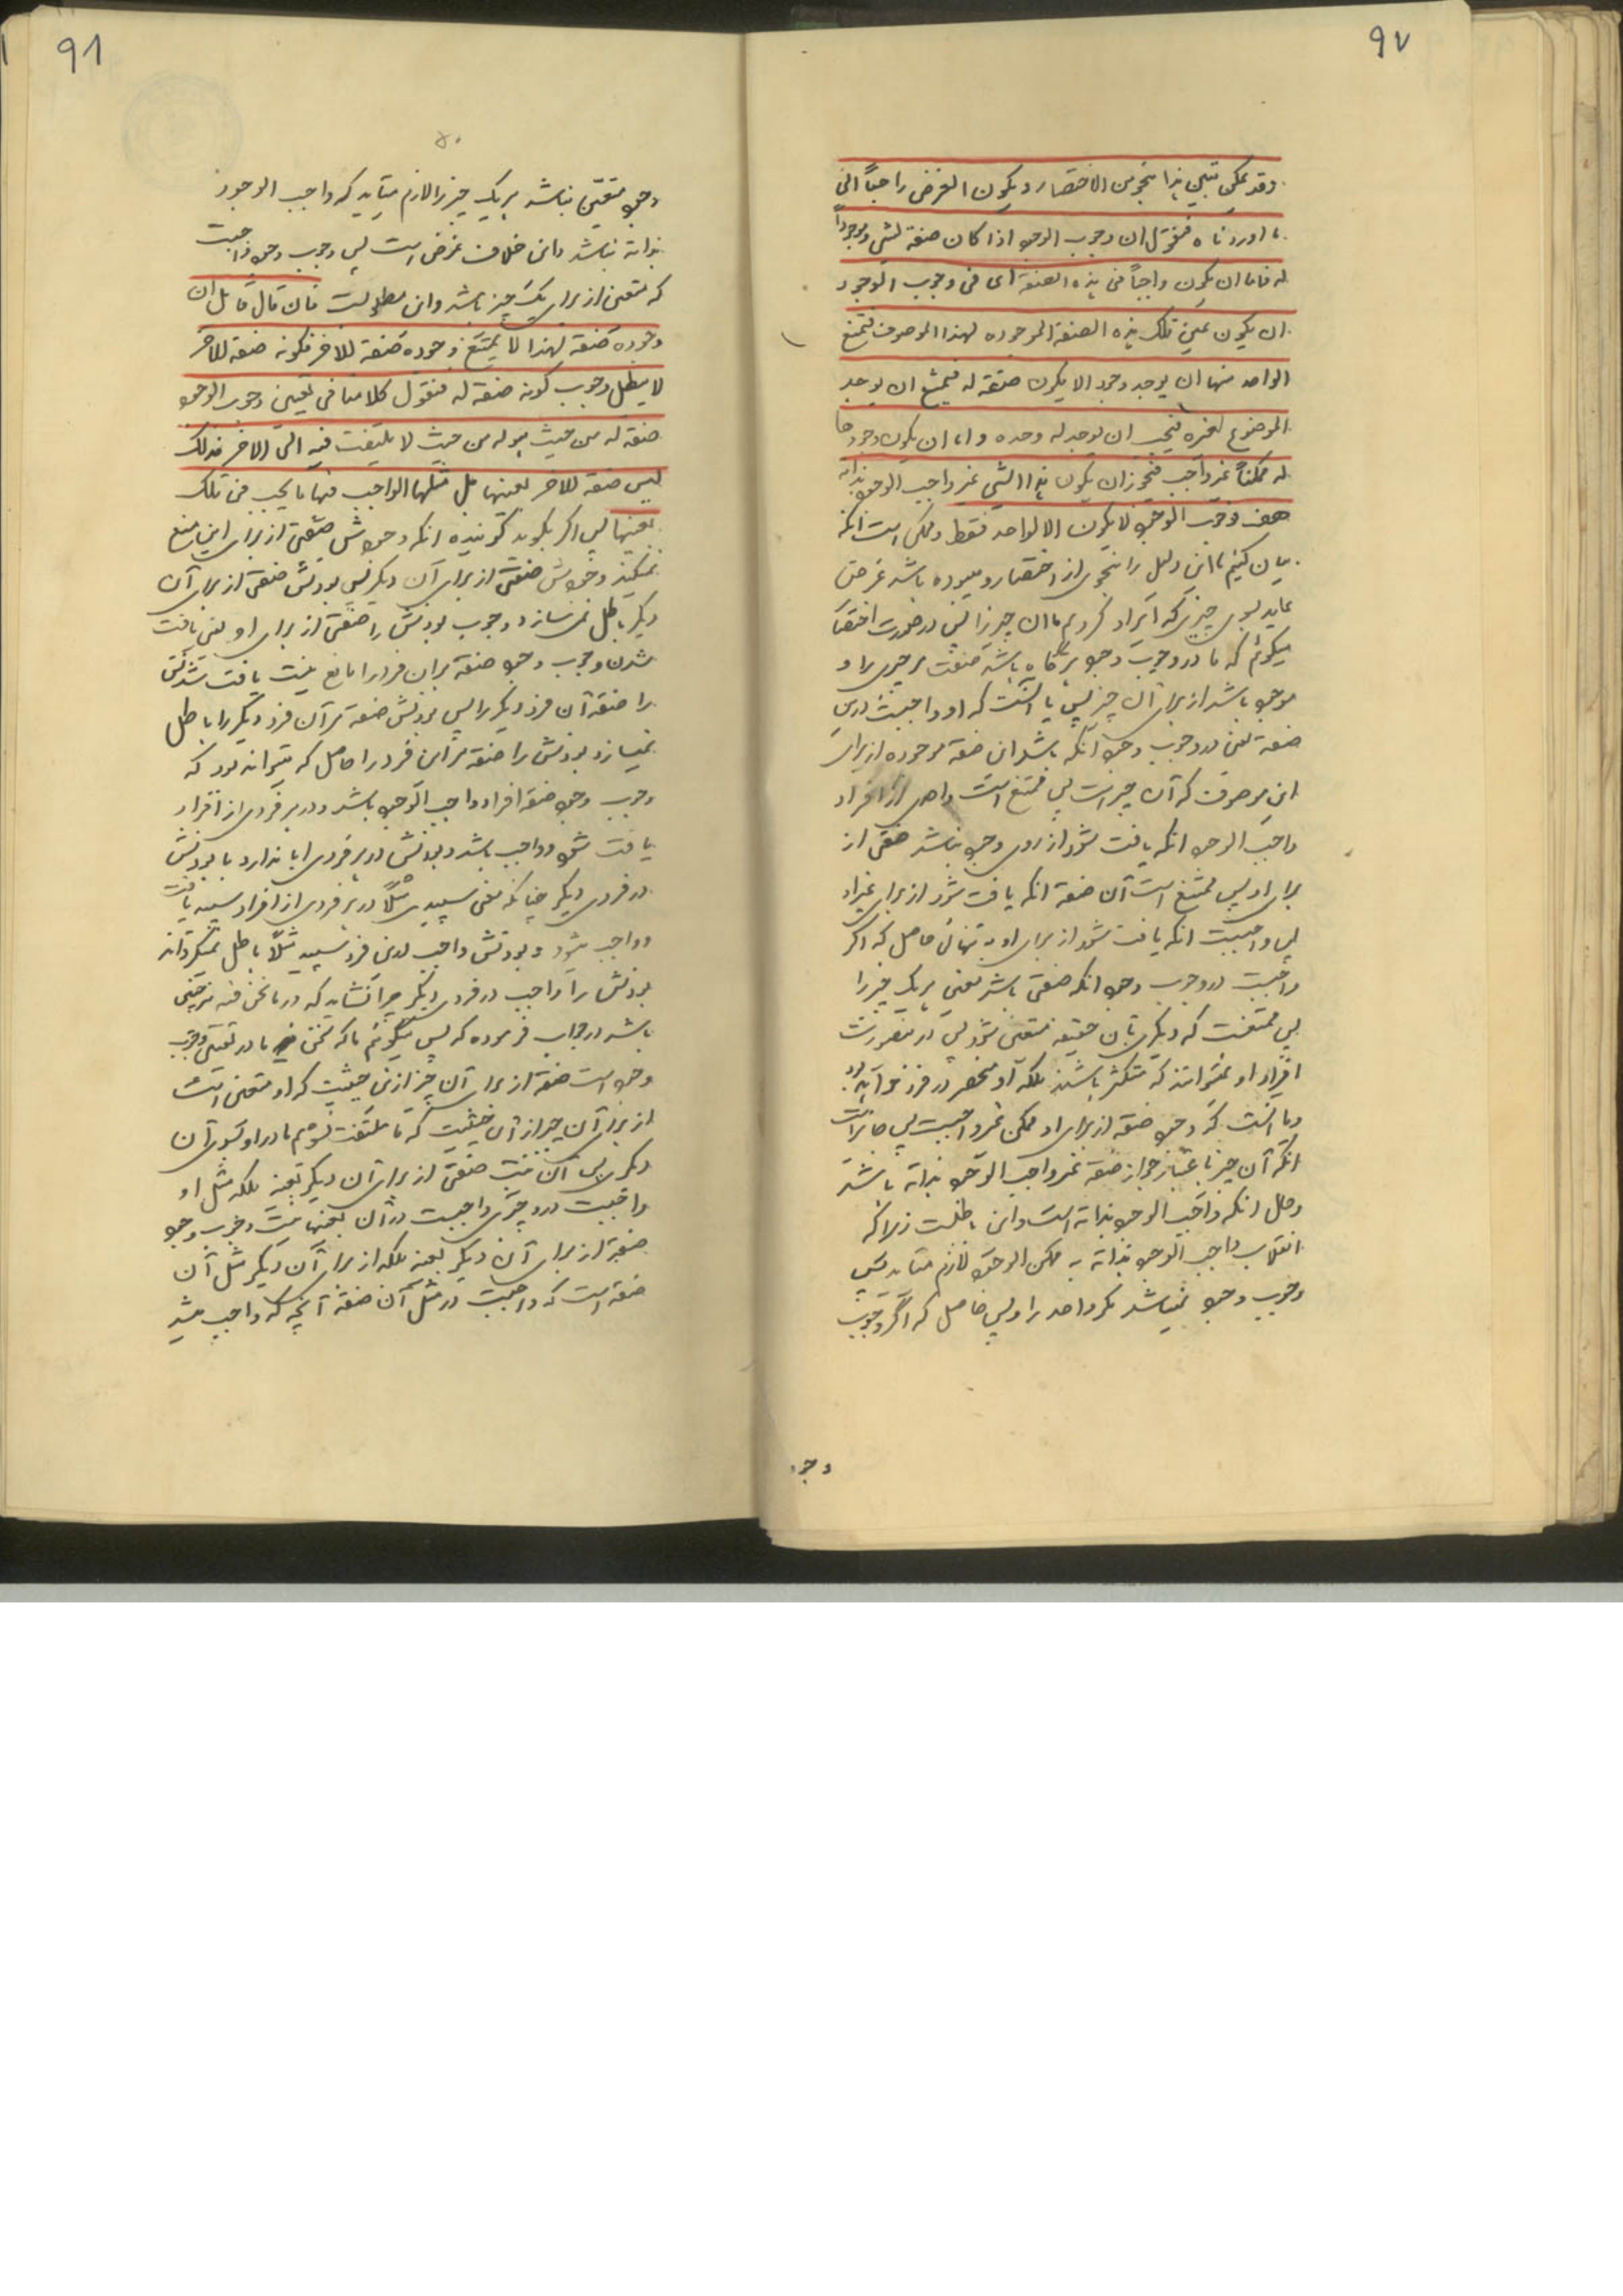 ٩٧
وقد يمكن تبيين هذا بنحو من الاختصار ويكون الغرض راجعاً الى
ما اوردناه فنقول ان وجوب الوجود اذا كان صفة لشئ وموجوداً
له فاما ان يكون واجباً فى هذه الصفة اى فى وجوب الوجود
ان يكون عين تلك هذه الصفة الموجودة لهذا الموصوف فيمتنع
الواحد منها ان يوجد وجود الا يكون صفة له فيمتنع ان يوجد
الموضوع لغيره فيجب ان يوجد له وحده واما ان يكون وجودها
له ممكناً غير واجب فيجوز ان يكون هذا الشئ غير واجب الوجود بذاته
هف فوجوب الوجود لا يكون الا لواحد فقط وممكن است انكه
بيان كنيم ما اين دليل را بنحوى از اختصار و ميبوده باشد غرض
عايد بسوى چيزى كه ايراد كرديم ما ان چيز را پس در صورت اختصار
ميگوئم كه ما در وجوب وجود هرگاه باشد صفت هر چيزى را و
موجود باشد از براى آن چيز پس يا آنست كه او واجبست درين
صفة يعنى در وجوب وجود آنكه باشد اين صفة موجوده از براى
اين موصوف كه آن چيز است پس ممتنع است واحدى از افراد
واجب الوجود انكه يافت شود از روى وجود نباشد صفتى از
براى او پس ممتنع است آن صفة انكه يافت شود از براى غير او
پس واجبست انكه يافت شود از براى او به تنهائى حاصل كه اگر
واجبست در وجوب وجود انكه صفتى باشد معين هر يك چيز را
پس ممتنعست كه ديگرى بآن حقيقه متعين شود پس درينصورت
افراد او نميتوانند كه متكثر باشند بلكه او منحصر در فرد خواهد بود
ويا آنست كه وجود صفة از براى او ممكن غير واجبست پس جايز است
انكه آن چيز باعتبار جواز صفة غير واجب الوجود بذاته باشد
وحال انكه واجب الوجود بذاته است واين باطلست زيراكه
انقلاب واجب الوجود بذاته به ممكن الوجود لازم ميايد پس
وجوب وجود نميباشد مگر واحد را و پس حاصل كه اگر وجوب
وجود
٩٨
وجود متعين نباشد هر يك چيز را لازم ميايد كه واجب الوجود
بذاته نباشد واين خلاف غرض است پس وجوب وجود واجبست
كه متعين از براى يك چيز باشد واين مطلوبست فان قال قائل ان
وجوده صفة لهذا لا يمتنع وجوده صفة للاخر فكونه صفة للاخر
لا يبطل وجوب كونه صفة له فنقول كلامنا فى تعيين وجوب الوجود
صفة له من حيث هو له من حيث لا يلتفت فيه الى الاخر فذلك
ليس صفة للاخر بعينها بل مثلها الواجب فيها ما يجب فى تلك
بعينها پس اگر بگويد گوينده انكه وجودش صفتى از براى اين منع
نميكند وجودش صفتى از براى آن ديگر پس بودنش صفتى از براى آن
ديگر باطل نمى سازد وجوب بودنش را صفتى از براى او يعنى يافت
شدن وجوب وجود صفة بر ان فرد را مانع نيست يافت شدنش
را صفة آن فرد ديگر را پس بودنش صفة مر آن فرد ديگر را باطل
نميسازد بودنش را صفة مر اين فرد را حاصل كه ميتواند بود كه
وجوب وجود صفة افراد واجب الوجود باشد و در هر فردى از افراد
يافت شود و واجب باشد و بودنش در هر فردى ابا ندارد با بودنش
در فردى ديگر چنانكه معنى سپيدى مثلاً در هر فردى از افراد سپيد يافت
و واجب شود و بودنش واجب درين فرد سپيد مثلاً باطل نميگرداند
بودنش را واجب در فردى ديگر چرا نشايد كه در ما نحن فيه نيز چنين
باشد در جواب فرموده كه پس ميگوئم ما كه سخن ما در تعين وجوب
وجود است صفة از براى آن چيز ازين حيثيت كه او متعين است
از براى آن چيز از آن حيثيت كه ما ملتفت نشويم ما در او بسوى آن
ديگر پس آن نيست صفتى از براى آن ديگر بعينه بلكه مثل او
واجبست در وچيزى واجبست در آن بعينها نيست وجوب وجود
صفة از براى آن ديگر بعينه بلكه از براى آن ديگر مثل آن
صفة است كه واجبست در مثل آن صفة آنچه كه واجب ميشد